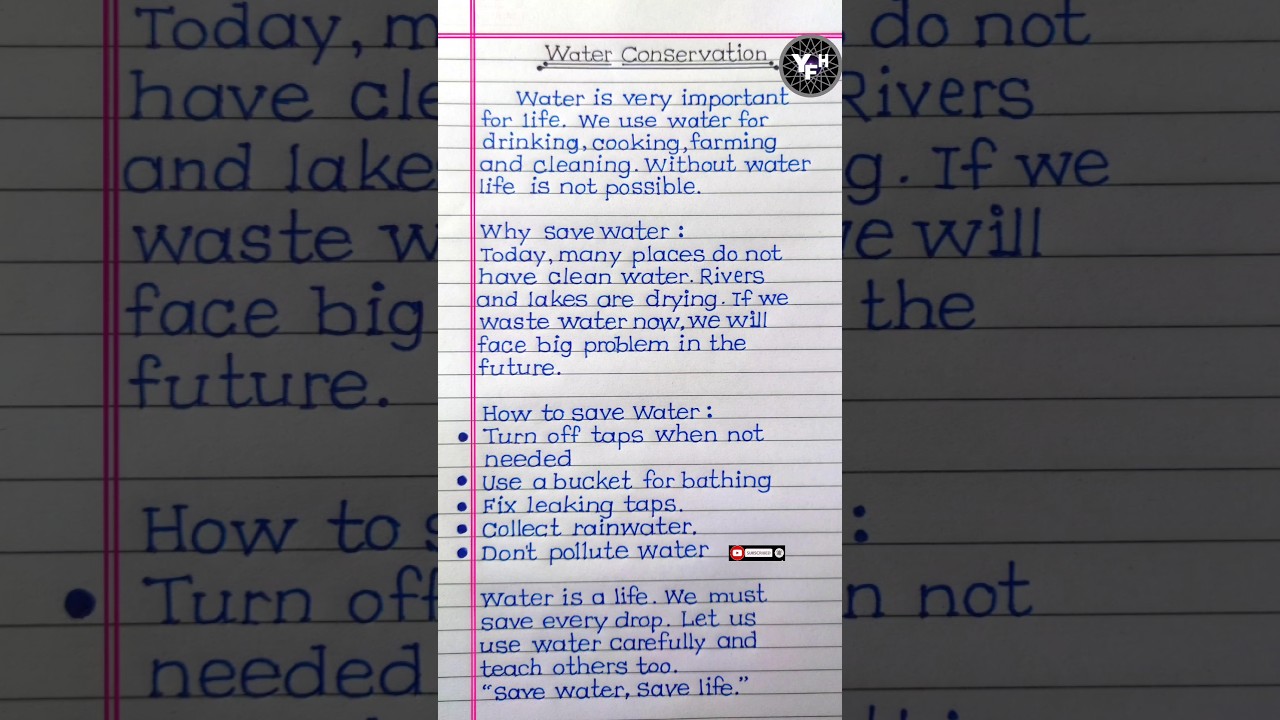 Water Conservation
YFH
Water is very important
for life. We use water for
drinking, cooking, farming
and cleaning. Without water
life is not possible.
Why save water :
Today, many places do not
have clean water. Rivers
and lakes are drying. If we
waste water now, we will
face big problem in the
future.
How to save Water :
• Turn off taps when not
needed
• Use a bucket for bathing
• Fix leaking taps.
• Collect rainwater.
• Don't pollute water
SUBSCRIBED
Water is a life. We must
save every drop. Let us
use water carefully and
teach others too.
"Save water, Save life."